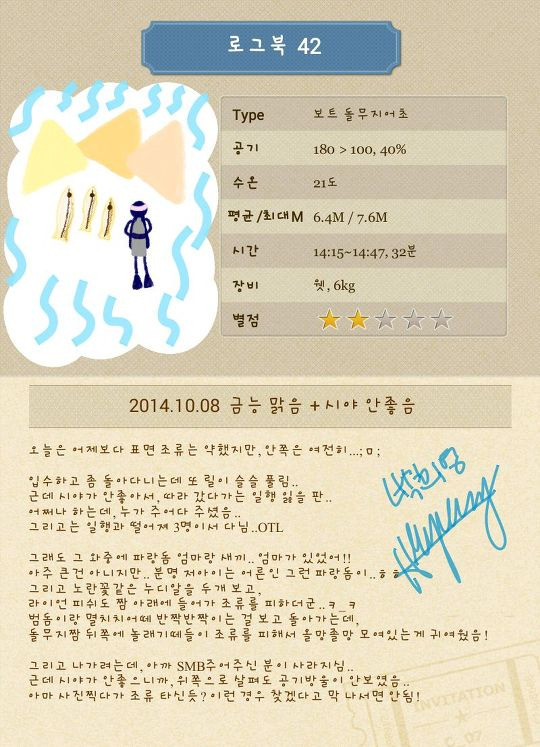 로그북 42
Type 보트 돌무지어초
공기 180 > 100, 40%
수온 21도
평균/최대M 6.4M / 7.6M
시간 14:15~14:47, 32분
장비 웻, 6kg
별점
2014.10.08 금능 맑음 + 시야 안좋음
오늘은 어제보다 표면 조류는 약했지만, 안쪽은 여전히...;ㅁ;
입수하고 좀 돌아다니는데 또 릴이 슬슬 풀림..
근데 시야가 안좋아서, 따라 갔다가는 일행 잃을 판..
어쩌나 하는데, 누가 주어다 주셨음..
그리고는 일행과 떨어제 3명이서 다님..OTL
그래도 그 와중에 파랑돔 엄마랑 새끼.. 엄마가 있었어!!
아주 큰건 아니지만.. 분명 저아이는 어른인 그런 파랑돔이..ㅎㅎ
그리고 노란꽃같은 누디알을 두개 보고,
라이언 피쉬도 짬 아래에 들어가 조류를 피하더군..ㅋ_ㅋ
범돔이랑 멸치치어떼 반짝반짝이는 걸 보고 돌아가는데,
돌무지짬 뒤쪽에 놀래기떼들이 조류를 피해서 올망졸망 모여있는게 귀여웠음!
그리고 나가려는데, 아까 SMB주어주신 분이 사라지심..
근데 시야가 안좋으니까, 위쪽으로 살펴도 공기방울이 안보였음..
아마 사진찍다가 조류 타신듯? 이런 경우 찾겠다고 막 나서면 안됨!
INVITATION